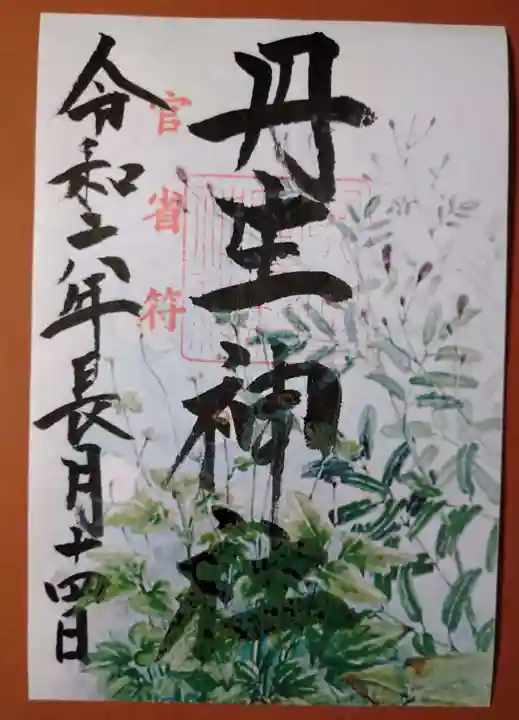 丹生神社
官省符
令和六年長月十四日